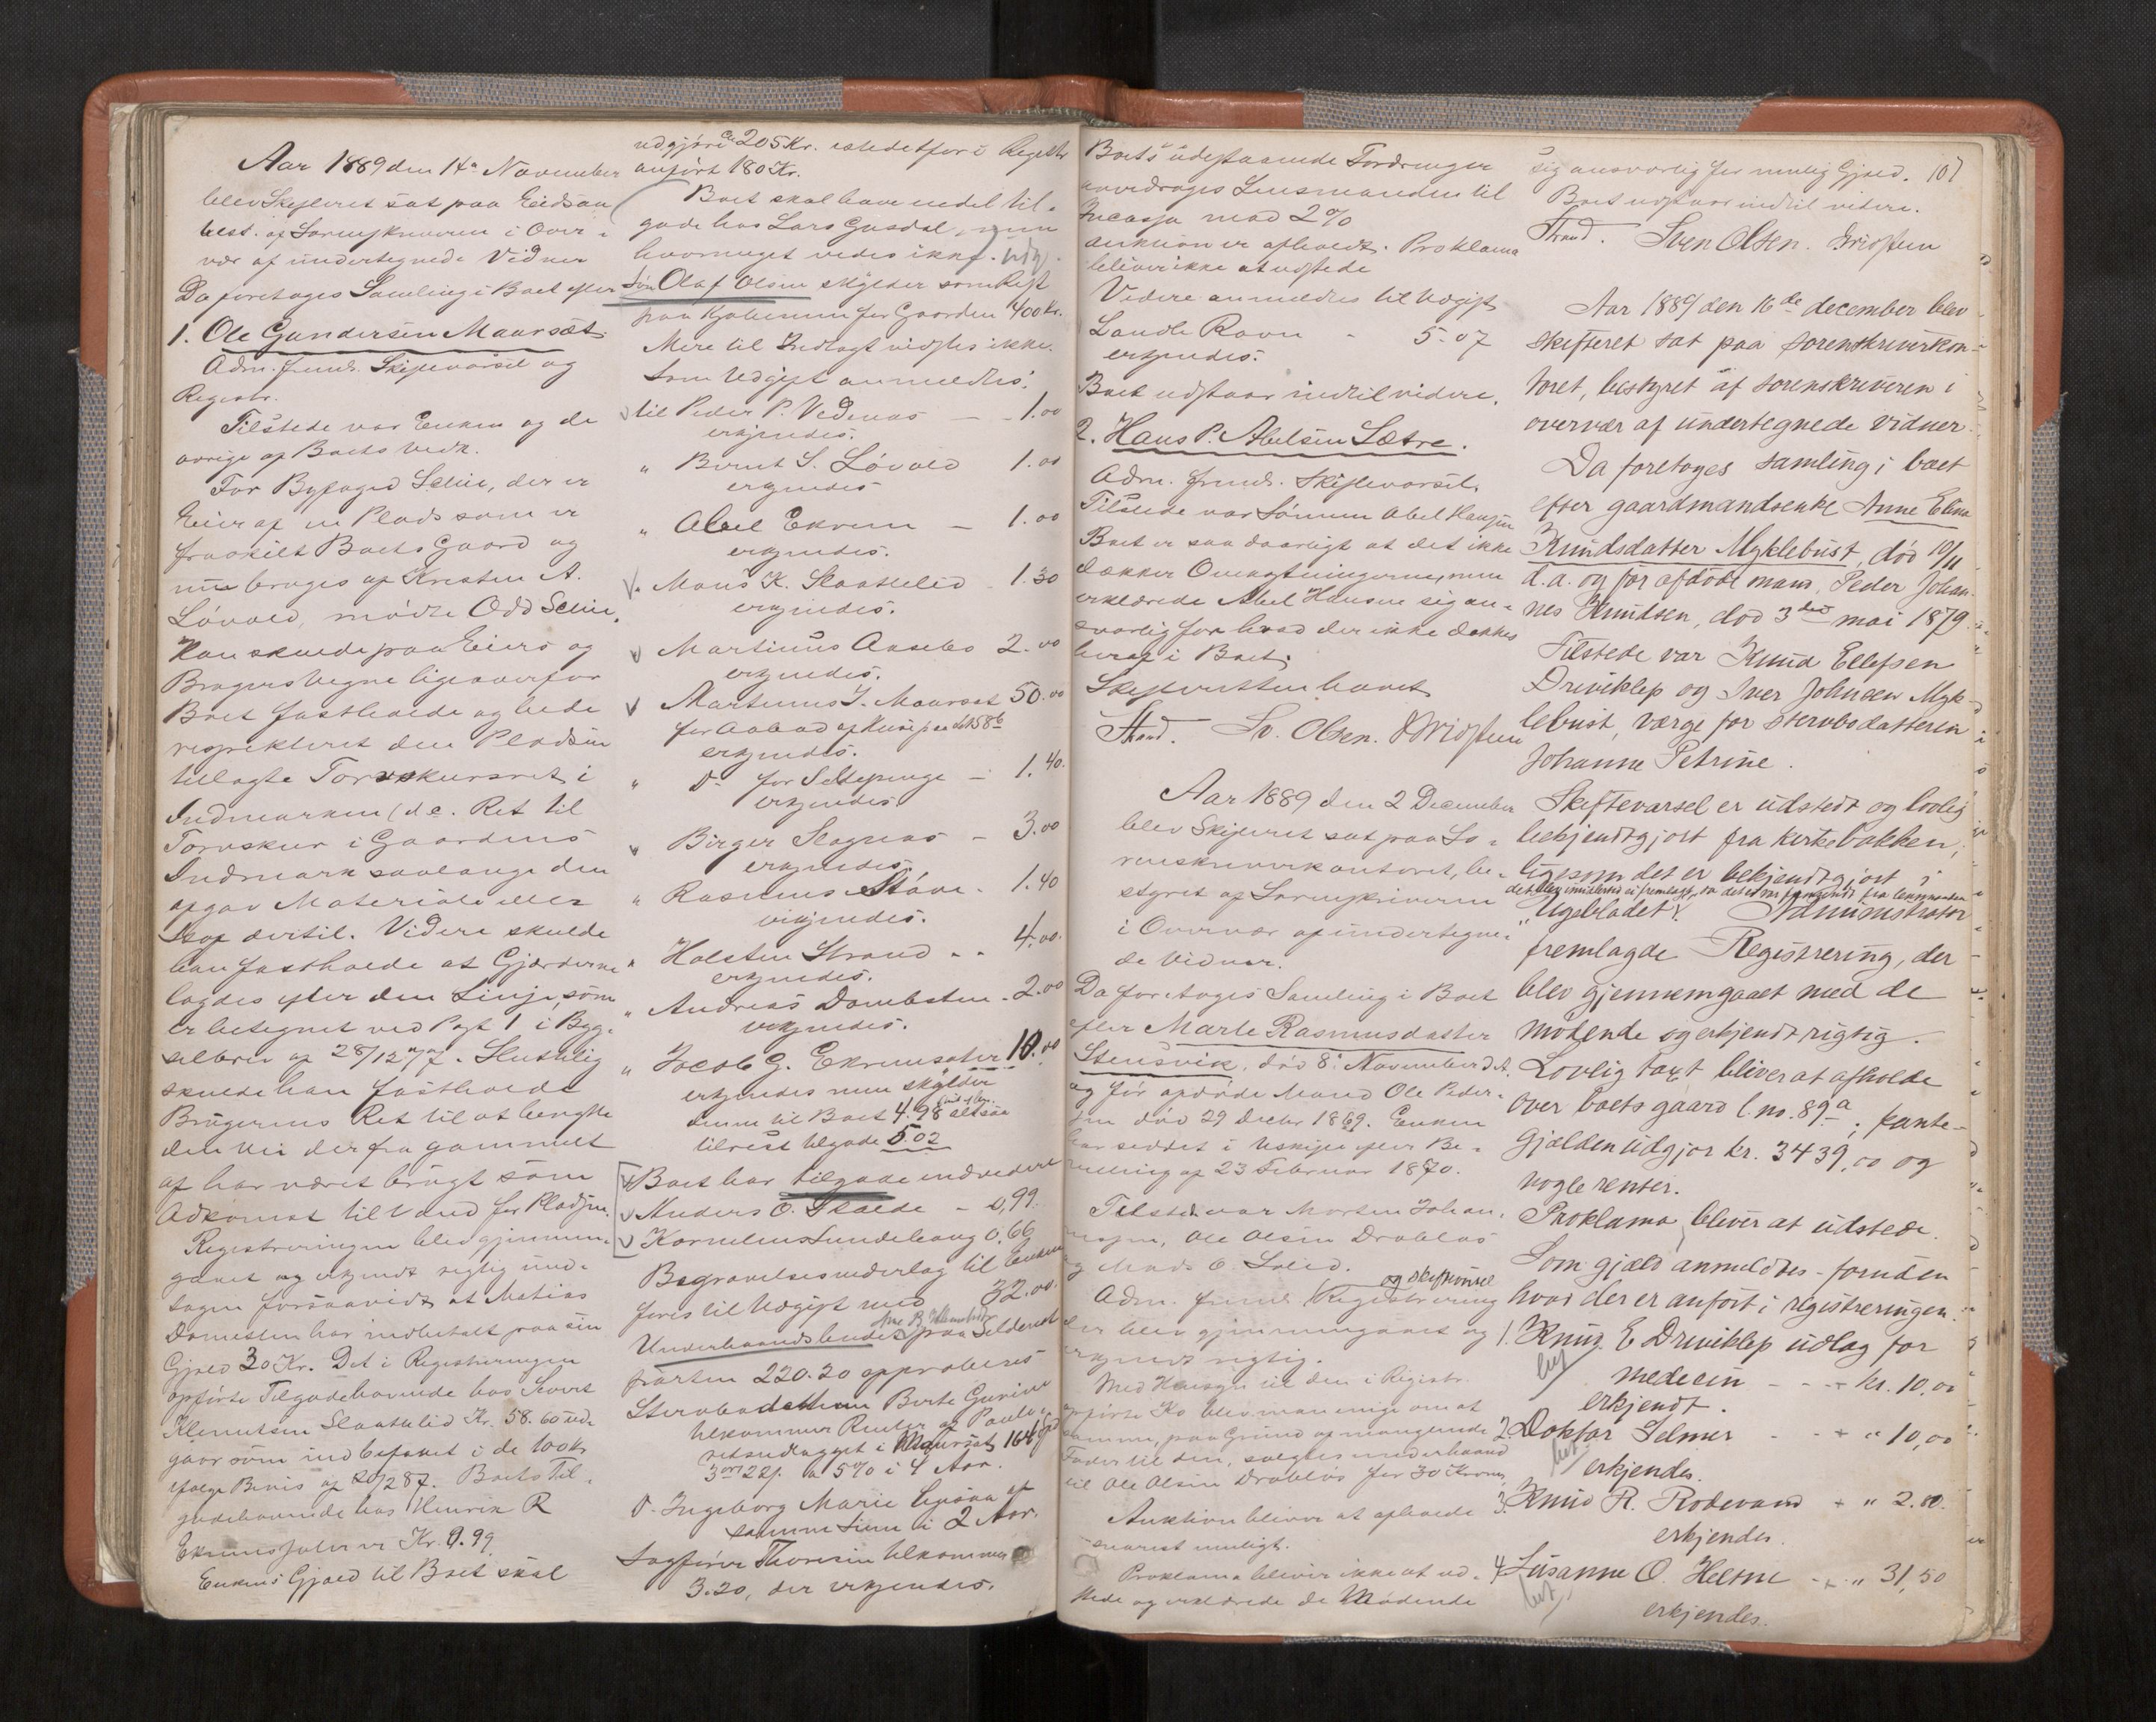 Aar 1889 den 14de November
blev Skifteret sat paa Eidsaa
best. af Sorenskriveren i Over-
vær af undertegnede Vidner
Da foretages Samling i Boet efter
1. Ole Gundersen Maursæt
Adm. freml. Skiftevarsel og
Registr.
Tilstede var Enken og de
øvrige af Boets Vedk.
For Byfoged Selmer, der er
Eier af en Plads som er
fraskilt Boets Gaard og
nu bruges af Kristen A.
Løvold, mødte Odd Selmer.
Han skulde paa Eiers og
Brugers Vegne ligeoverfor
Boet fastholde og bede
respekteret den Pladsen
tillagte Torvskursret i
Indmarken (d.e. Ret til
Torvskur i Gaardens
Indmark saalænge den
afgav Materiale eller
dertil. Videre skulde
han fastholde at Gjærderne
lagdes efter den Linje, som
er betegnet ved Post 1 i Byg-
selbrev af 28/12 77. Sluttelig
skulde han fastholde
Brugerens Ret til at benytte
den Vei der fra gammelt
af har været brugt som
Adkomst til Vand for Pladsen.
Registreringen blev gjennem-
gaaet og erkjendt rigtig und-
tagen forsaavidt at Matias
Domesten har indbetalt paa sin
Gjæld 30 Kr. Det i Registreringen
opførte Tilgodehavende hos Sivert
Klemetsen Slaattelid Kr. 58.60 ud-
gaar som indbefattet i de 100 Kr
ifølge Bevis af 287. Boets Til-
godehavende hos Henrik R
Ekremsæter er Kr. 9.99
Enkens Gjæld til Boet skal
udgjøre 205 Kr. istedetfor i Registr
anført 180 Kr.
Boet skal have endel til-
gode hos Lars Gusdal, men
hvormeget vides ikke.
Søn Olaf Olsen skylder som Rest
paa Kjøbesum for Gaarden 400 Kr.
Mere til Indtægt vidstes ikke.
Som Udgift anmeldtes:
til Peder P. Vedenes - - 1.00
erkjendes.
" Bernt S. Løvold 1.00
erkjendes
" Abel Ekrem - 1.00
erkjendes.
" Mons K. Slaattelid - 1.30
erkjendes.
Martinus Aasebø 2.00
erkjendes.
Martinus J. Maursæt 50.00
for Aabod af Huse paa
erkjendes.
" Do for Seddepenge - 1.40.
erkjendes
Birger Slagnes - 3.00
erkjendes
" Rasmus Støve - 1.40
erkjendes.
" Halsten Strand - - 4.00.
erkjendes.
" Andreas Dombesten - 2.00
erkjendes.
" Jacob G. Ekremsæter 10.00
erkjendes men skylder
denne til Boet 4.98 altsaa
tilrest tilgode 5.02
Boet har tilgode endvidere
Anders O. Skaide - 0,99.
Kornelius Sundebang 0,66
Begravelsesudlæg til Enken
føres til Udgift med 32.00.
Underhaandsbudet paa Selderet-
parten 220.20 approberes
Stervbodatteren Berte Gurine
tilkommer Renter af Paulo-
retsudlægget i Maursæt
3 ort 22 s. à 5% i 4 Aar.
Do Ingeborg Marie ligesaa af
samme Sum i 2 Aar.
Sagfører Thoresen tilkommer
3.20, der erkjendes.
Boets udestaaende Fordringer
overdrages Lensmanden til
Incasso mod 2%
Auktion er afholdt. Proklama
bliver ikke at udstede
Videre anmeldtes til Udgift
Landh Ravn - 5.07
erkjendes.
Boet udstaar indtil videre.
2. Hans P. Abelsen Sætre.
Adm. freml. Skiftevarsel.
Tilstede var Sønnen Abel Hansen
Boet er saa daarligt at det ikke
dækker Omkostningerne, men
erklærede Abel Hansen sig an-
svarlig for hvad der ikke dækkes
herof i Boet.
Skifteretten hævet
Strand. Sv. Olsen.
Aar 1889 den 2 December
blev Skifteret sat paa So-
renskriverkontoret, be-
styret af Sorenskriveren
i Overvær af undertegne-
de Vidner.
Da foretages Samling i Boet
efter Marte Rasmusdatter
Stensvik, død 8. November d.A.
og før afdøde Mand Ole Peder-
sen død 29 Decbr 1869. Enken
har siddet i Uskiftet efter Be-
villing af 23 Februar 1870.
Tilstede var Morten Johan-
nesen, Ole Olsen Drabløs
og Mads O. Leid.
og skiftevarsel
Adm. freml. Registrering
der blev gjennemgaaet og
erkjendt rigtig.
Med Hensyn til den i Registr.
opførte Ko blev man enige om at
samme, paa Grund af manglende
Foder til den, sælges underhaand
til Ole Olsen Drabløs for 30 Kroner
Auktion bliver at afholde
snarest muligt.
Proklama bliver ikke at ud-
stede og erklærede de Mødende
sig ansvarlig for mulig Gjæld. 107
Boet udstaar indtil videre.
Strand. Sven Olsen.
Aar 1889 den 16de december blev
skifteret sat paa sorenskriverkon-
toret, bestyret af sorenskriveren i
overvær af undertegnede vidner.
Da foretoges samling i boet
efter gaardmandsenke Anne Elina
Knudsdatter Myklebust, død 10/11
d.a. og før afdøde mand, Peder Johan-
nes Knudsen, død 3die mai 1879.
Tilstede var Knud Ellefsen
Driviklep og Iver Johnsen Myk-
lebust, værge for stervbodatteren
Johanne Petrine.
Skiftevarsel er udstedt og lovlig
bekjendtgjort fra kirkebakken,
ligesom det er bekjendtgjort i
det blev imidlertid ei fremlagt, da det ei var fra lensmanden
"Ugebladet". Administrator
fremlagde Registrering, der
blev gjennemgaaet med de
mødende og erkjendt rigtig.
Lovlig taxt bliver at afholde
over boets gaard l.no. 89a; pante-
gjælden udgjør kr. 3439,00 og
nogle renter.
Proklama bliver at udstede.
Som gjæld anmeldtes - foruden
hvad der er anført i registreringen.
1. Knud E Driviklep udlæg for
medecin - - - kr. 10,00
erkjendt.
2. Doktor Selmer - - - " 10,00
erkjendes.
3. Knud R. Rødevand - " 2.00.
erkjendes.
4 Susanne O. Helsne - - " 31,50
erkjendes.